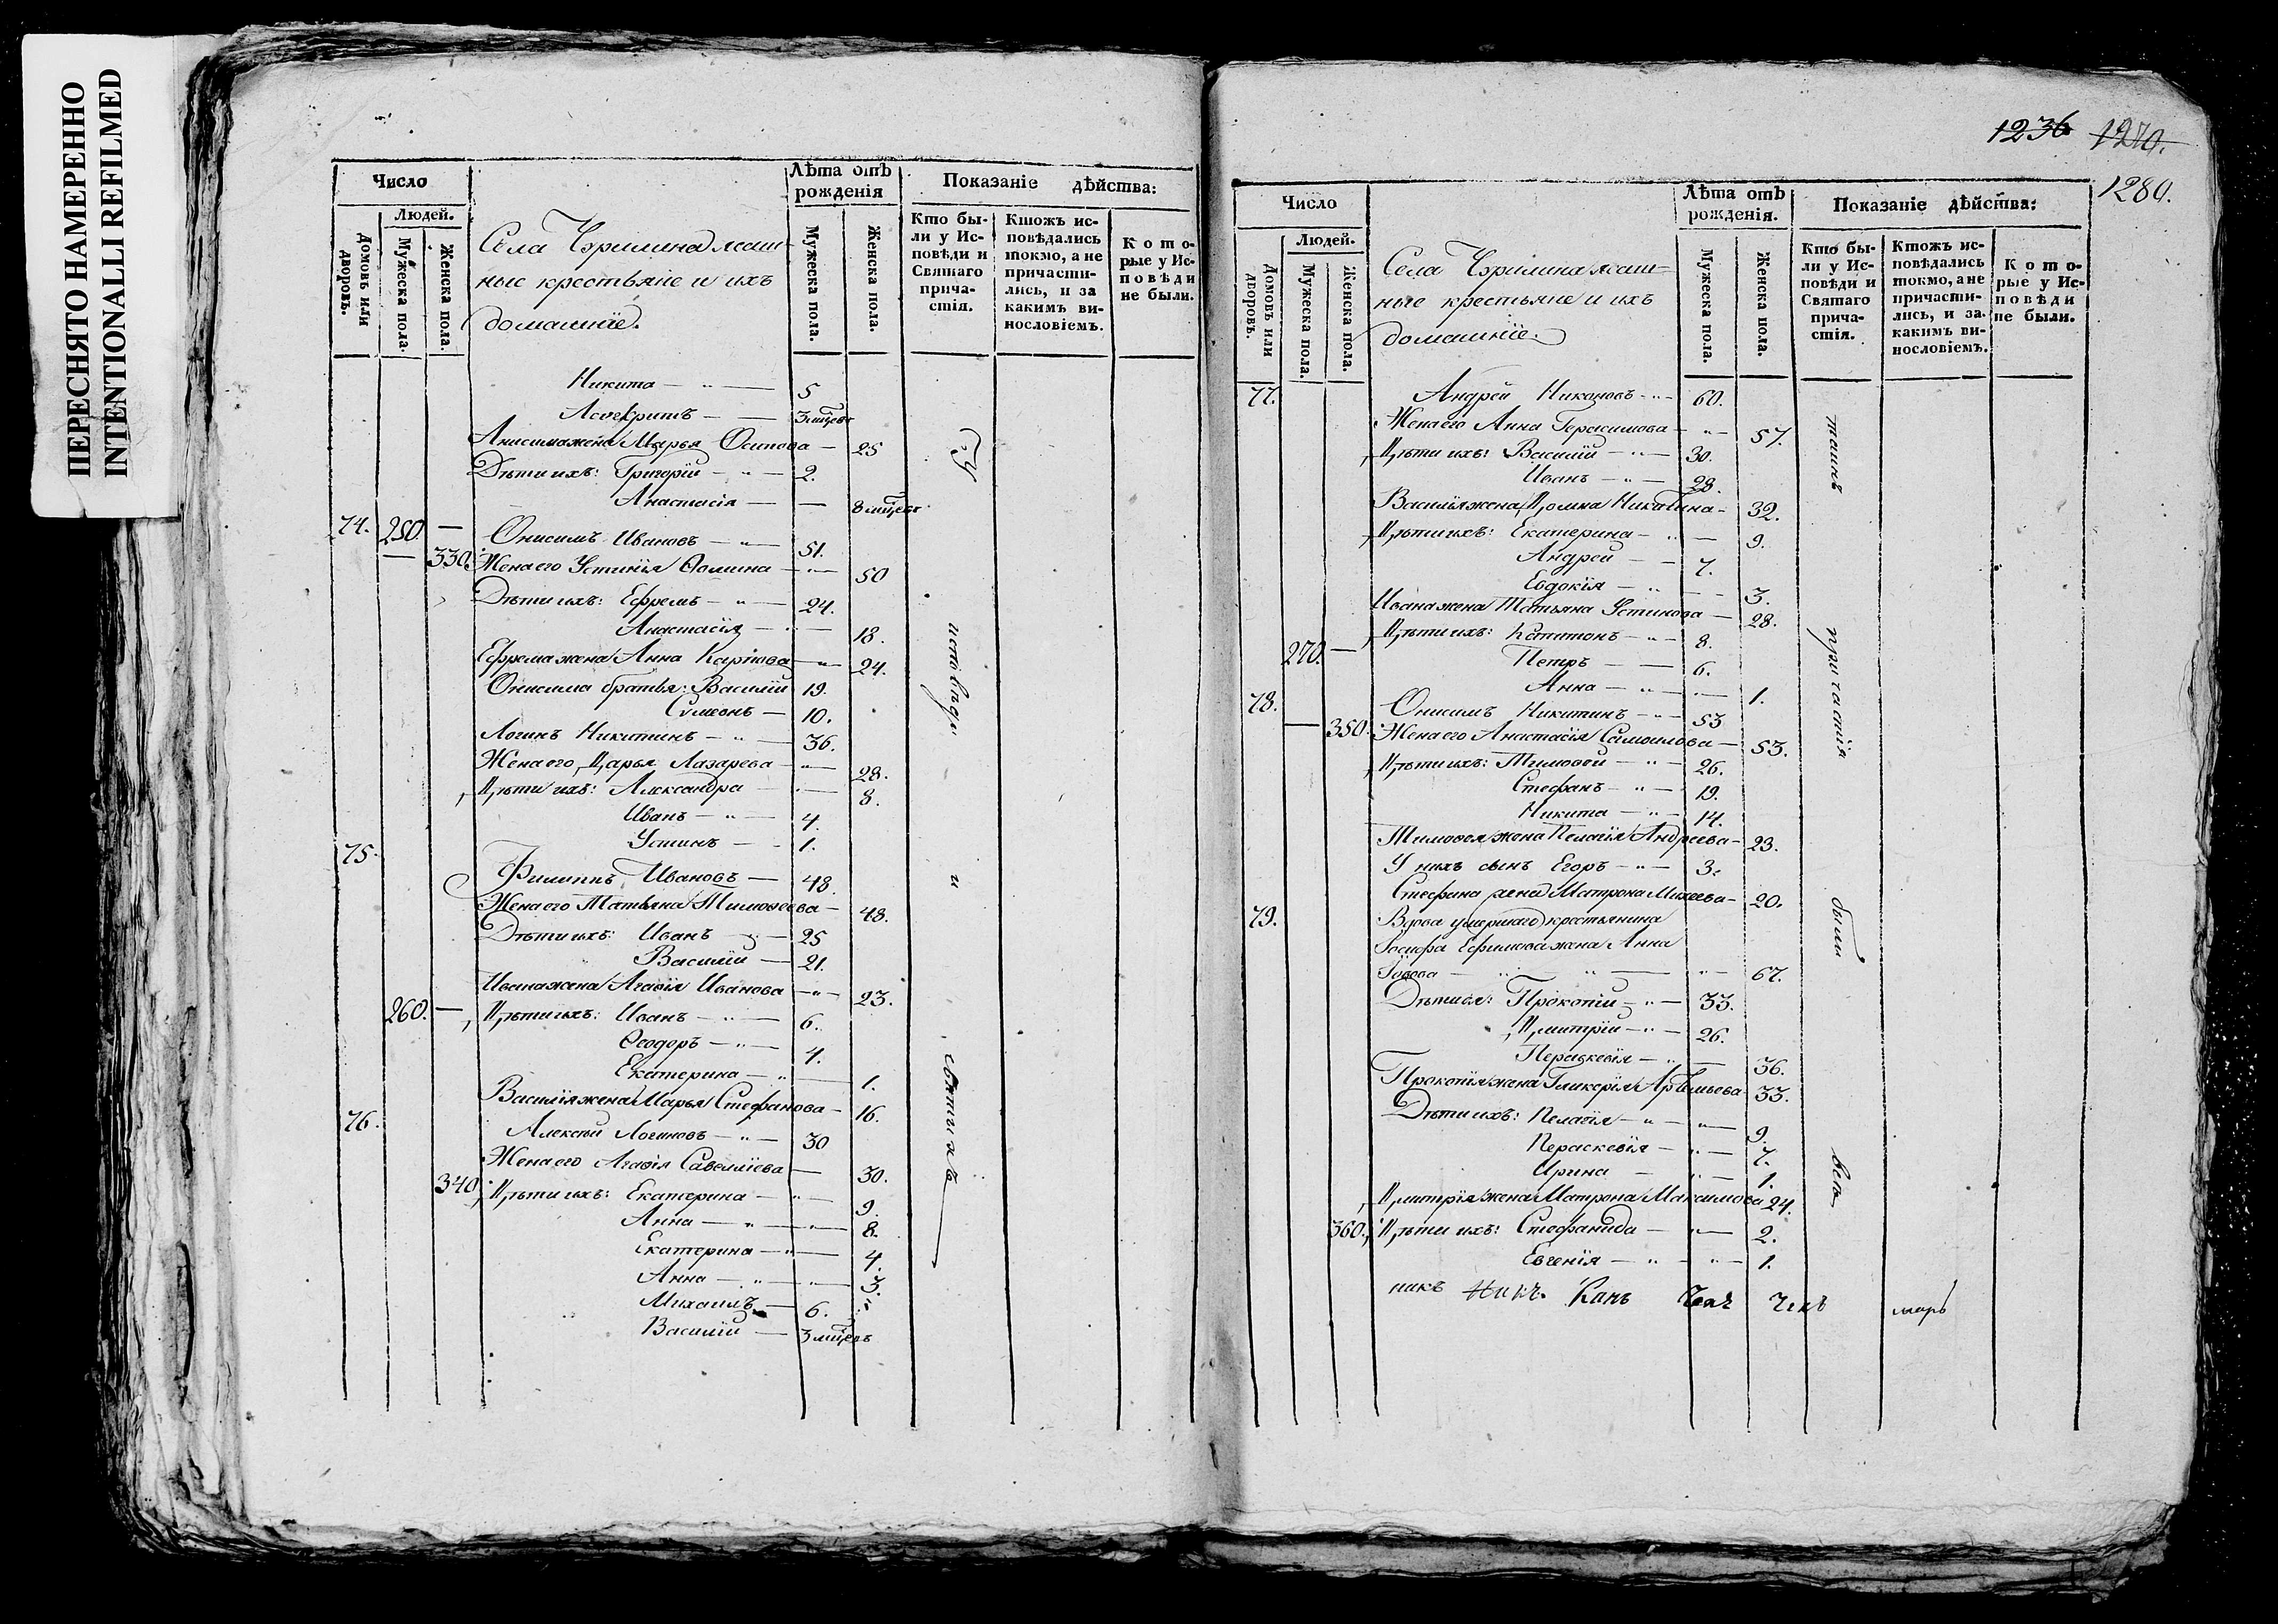 ПЕРЕСНЯТО НАМЕРЕННО
INTENTIONALLI REFILMED
Число
Людей.
Домовъ или дворовъ.
Мужеска пола.
Женска пола.
Села
ные крестьяне и ихъ
домашніе.
Лѣта отъ рожденія
Мужеска пола.
Женска пола.
Показаніе дѣйства:
Кто были у Исповѣди и Святаго причастія.
Ктожъ исповѣдались токмо, а не причастились, и за какимъ винословіемъ.
Которые у Исповѣди не были.
Никита — 5
Асигкритъ — 3 мцевъ
Анисима жена Марья Осипова — 25
Дѣти ихъ: Григорій — 2.
Анастасія — 8 мцевъ
74. 250. — Онисимъ Ивановъ — 51.
— 330. Жена его Устинія Ѳомина — 50
Дѣти ихъ: Ефремъ — 24.
Анастасія — 18.
Ефрема жена Анна Карпова — 24.
Онисима братья: Василій 19.
Сѵмеонъ — 10.
Логинъ Никитинъ — 36.
Жена его Дарья Лазарева — 28.
Дѣти ихъ: Александра — 8.
Иванъ — 4.
Устинъ — 1.
75. Филиппъ Ивановъ — 48.
Жена его Татьяна Тимоѳеева — 48.
Дѣти ихъ: Иванъ — 25
Василій — 21.
Ивана жена Агаѳія Иванова — 23.
260. — Дѣти ихъ: Иванъ — 6.
Ѳеодоръ — 4.
Екатерина — 1.
Василія жена Марья Стефанова — 16.
76. Алексѣй Логиновъ — 30
Жена его Агаѳія Савеліева — 30.
340. Дѣти ихъ: Екатерина — 9.
Анна — 8.
Екатерина — 4.
Анна — 3.
Михаилъ — 6.
Василій — 3 мцевъ
У
исповѣди
и
святыхъ
1236 1270.
1280.
Число
Людей.
Домовъ или дворовъ.
Мужеска пола.
Женска пола.
Села
ные крестьяне и ихъ
домашніе.
Лѣта отъ рожденія.
Мужеска пола.
Женска пола.
Показаніе дѣйства:
Кто были у Исповѣди и Святаго причастія.
Ктожъ исповѣдались токмо, а не причастились, и за какимъ винословіемъ.
Которые у Исповѣди не были.
77. Андрей Никоновъ — 60.
Жена его Анна Герасимова — 57.
Дѣти ихъ: Василій — 30.
Иванъ — 28.
Василія жена Домна Никитина — 32.
Дѣти ихъ: Екатерина — 9.
Андрей — 7.
Евдокія — 3.
Ивана жена Татьяна Устинова — 28.
Дѣти ихъ: Капитонъ — 8.
270. — Петръ — 6.
Анна — 1.
78. Онисимъ Никитинъ — 53
— 350. Жена его Анастасія Самоилова — 53.
Дѣти ихъ: Тимоѳей — 26.
Стефанъ — 19.
Никита — 14.
Тимоѳея жена Пелагія Андреева — 23.
У нихъ сынъ Егоръ — 3.
Стефана жена Матрона Михеева — 20.
79. Вдова умершаго крестьянина
Іосифа Ефимова жена Анна
— 67.
Дѣти ея: Прокопій — 33.
Димитрій — 26.
Параскевія — 36.
Прокопія жена Гликерія Артемьева 33.
Дѣти ихъ: Пелагія — 9.
Параскевія — 7.
Ирина — 1.
Димитрія жена Матрона Максимова 24.
360. Дѣти ихъ: Стефанида — 2.
Евгенія — 1.
таинъ
причастія
были
всѣ